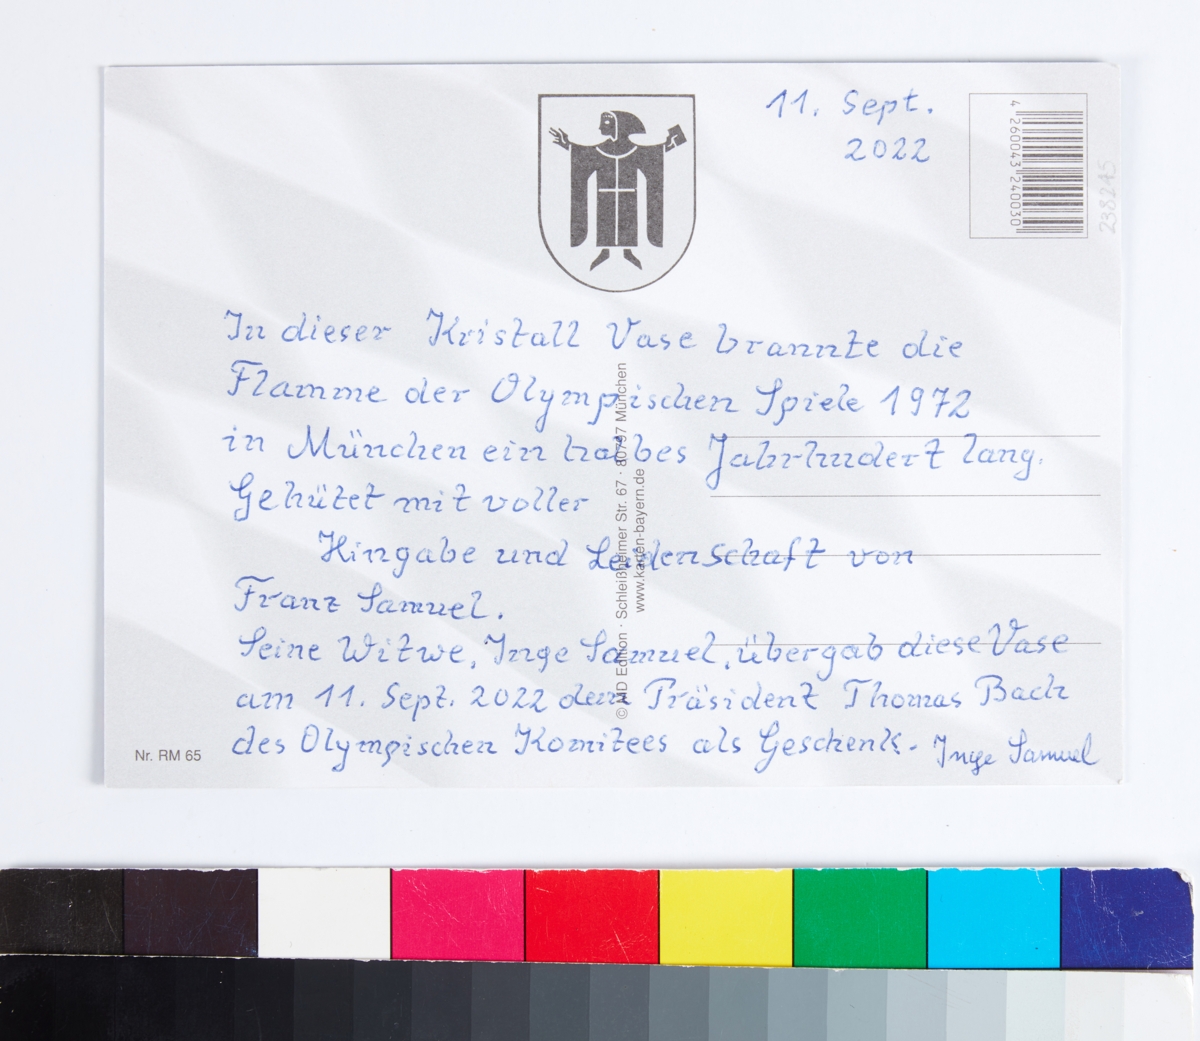 11. Sept.
2022
4 260043 240030
238245
In dieser Kristall Vase brannte die
Flamme der Olympischen Spiele 1972
in München ein halbes Jahrhundert lang.
Gehütet mit voller
Hingabe und Leidenschaft von
Franz Samuel.
Seine Witwe, Inge Samuel, übergab diese Vase
am 11. Sept. 2022 dem Präsident Thomas Bach
des Olympischen Komitees als Geschenk. Inge Samuel
© MD Edition · Schleißheimer Str. 67 · 80797 München
www.karten-bayern.de
Nr. RM 65